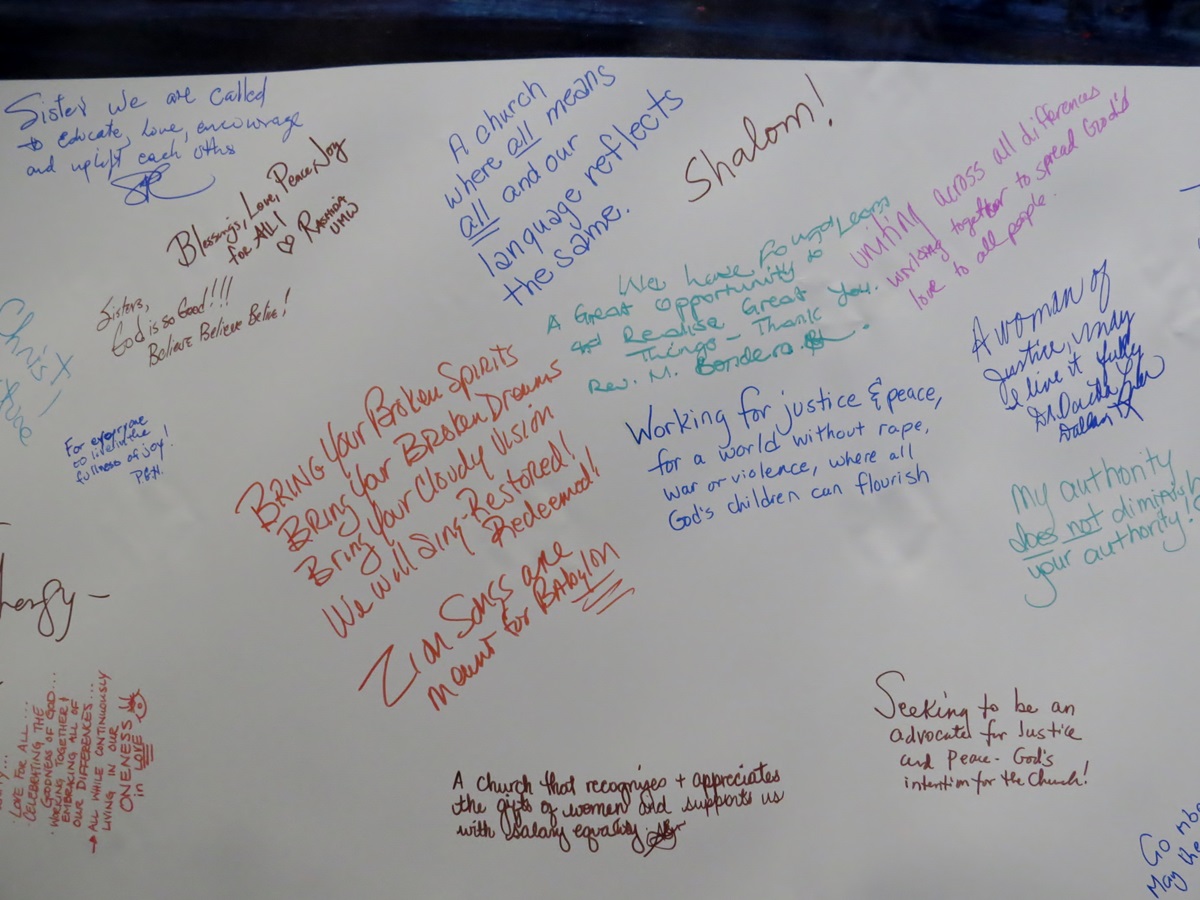 Sister we are called
to educate, love, encourage
and uplift each oths
Blessings, Love, Peace Joy
for ALL!
♡ Rashida
UMW
Sisters,
God is so Good!!!
Believe Believe Believe!
Christ
For everyone
to live in the
fullness of joy!
A church
where all means
all and our
language reflects
the same.
Shalom!
We have Found Learn
A Great opportunity to
Realise Great You.
Things - Thank
Rev. M. Bondero.
uniting across all differences
working together to spread God's
love to all people.
A woman of
Justice, may
I live it fully
Dr.
Dallas TX
BRING Your Broken Spirits
Bring Your Broken Dreams
Bring Your Cloudy Vision
We Will Sing-Restored!
Redeemed!
Zion Songs are
meant for BAbylon
Working for justice & peace,
for a world without rape,
war or violence, where all
God's children can flourish
My authority
does not diminish
your authority!
LOVE FOR ALL...
CELEBRATING THE
GOODNESS OF GOD...
WORKING TOGETHER!
EMBRACING ALL OF
OUR DIFFERENCES...
→ ALL WHILE CONTINUOUSLY
LIVING IN OUR
ONENESS
in LOVE
A church that recognises + appreciates
the gifts of women and supports us
with salary equality.
Seeking to be an
advocate for Justice
and Peace - God's
intention for the Church!
Go
May the